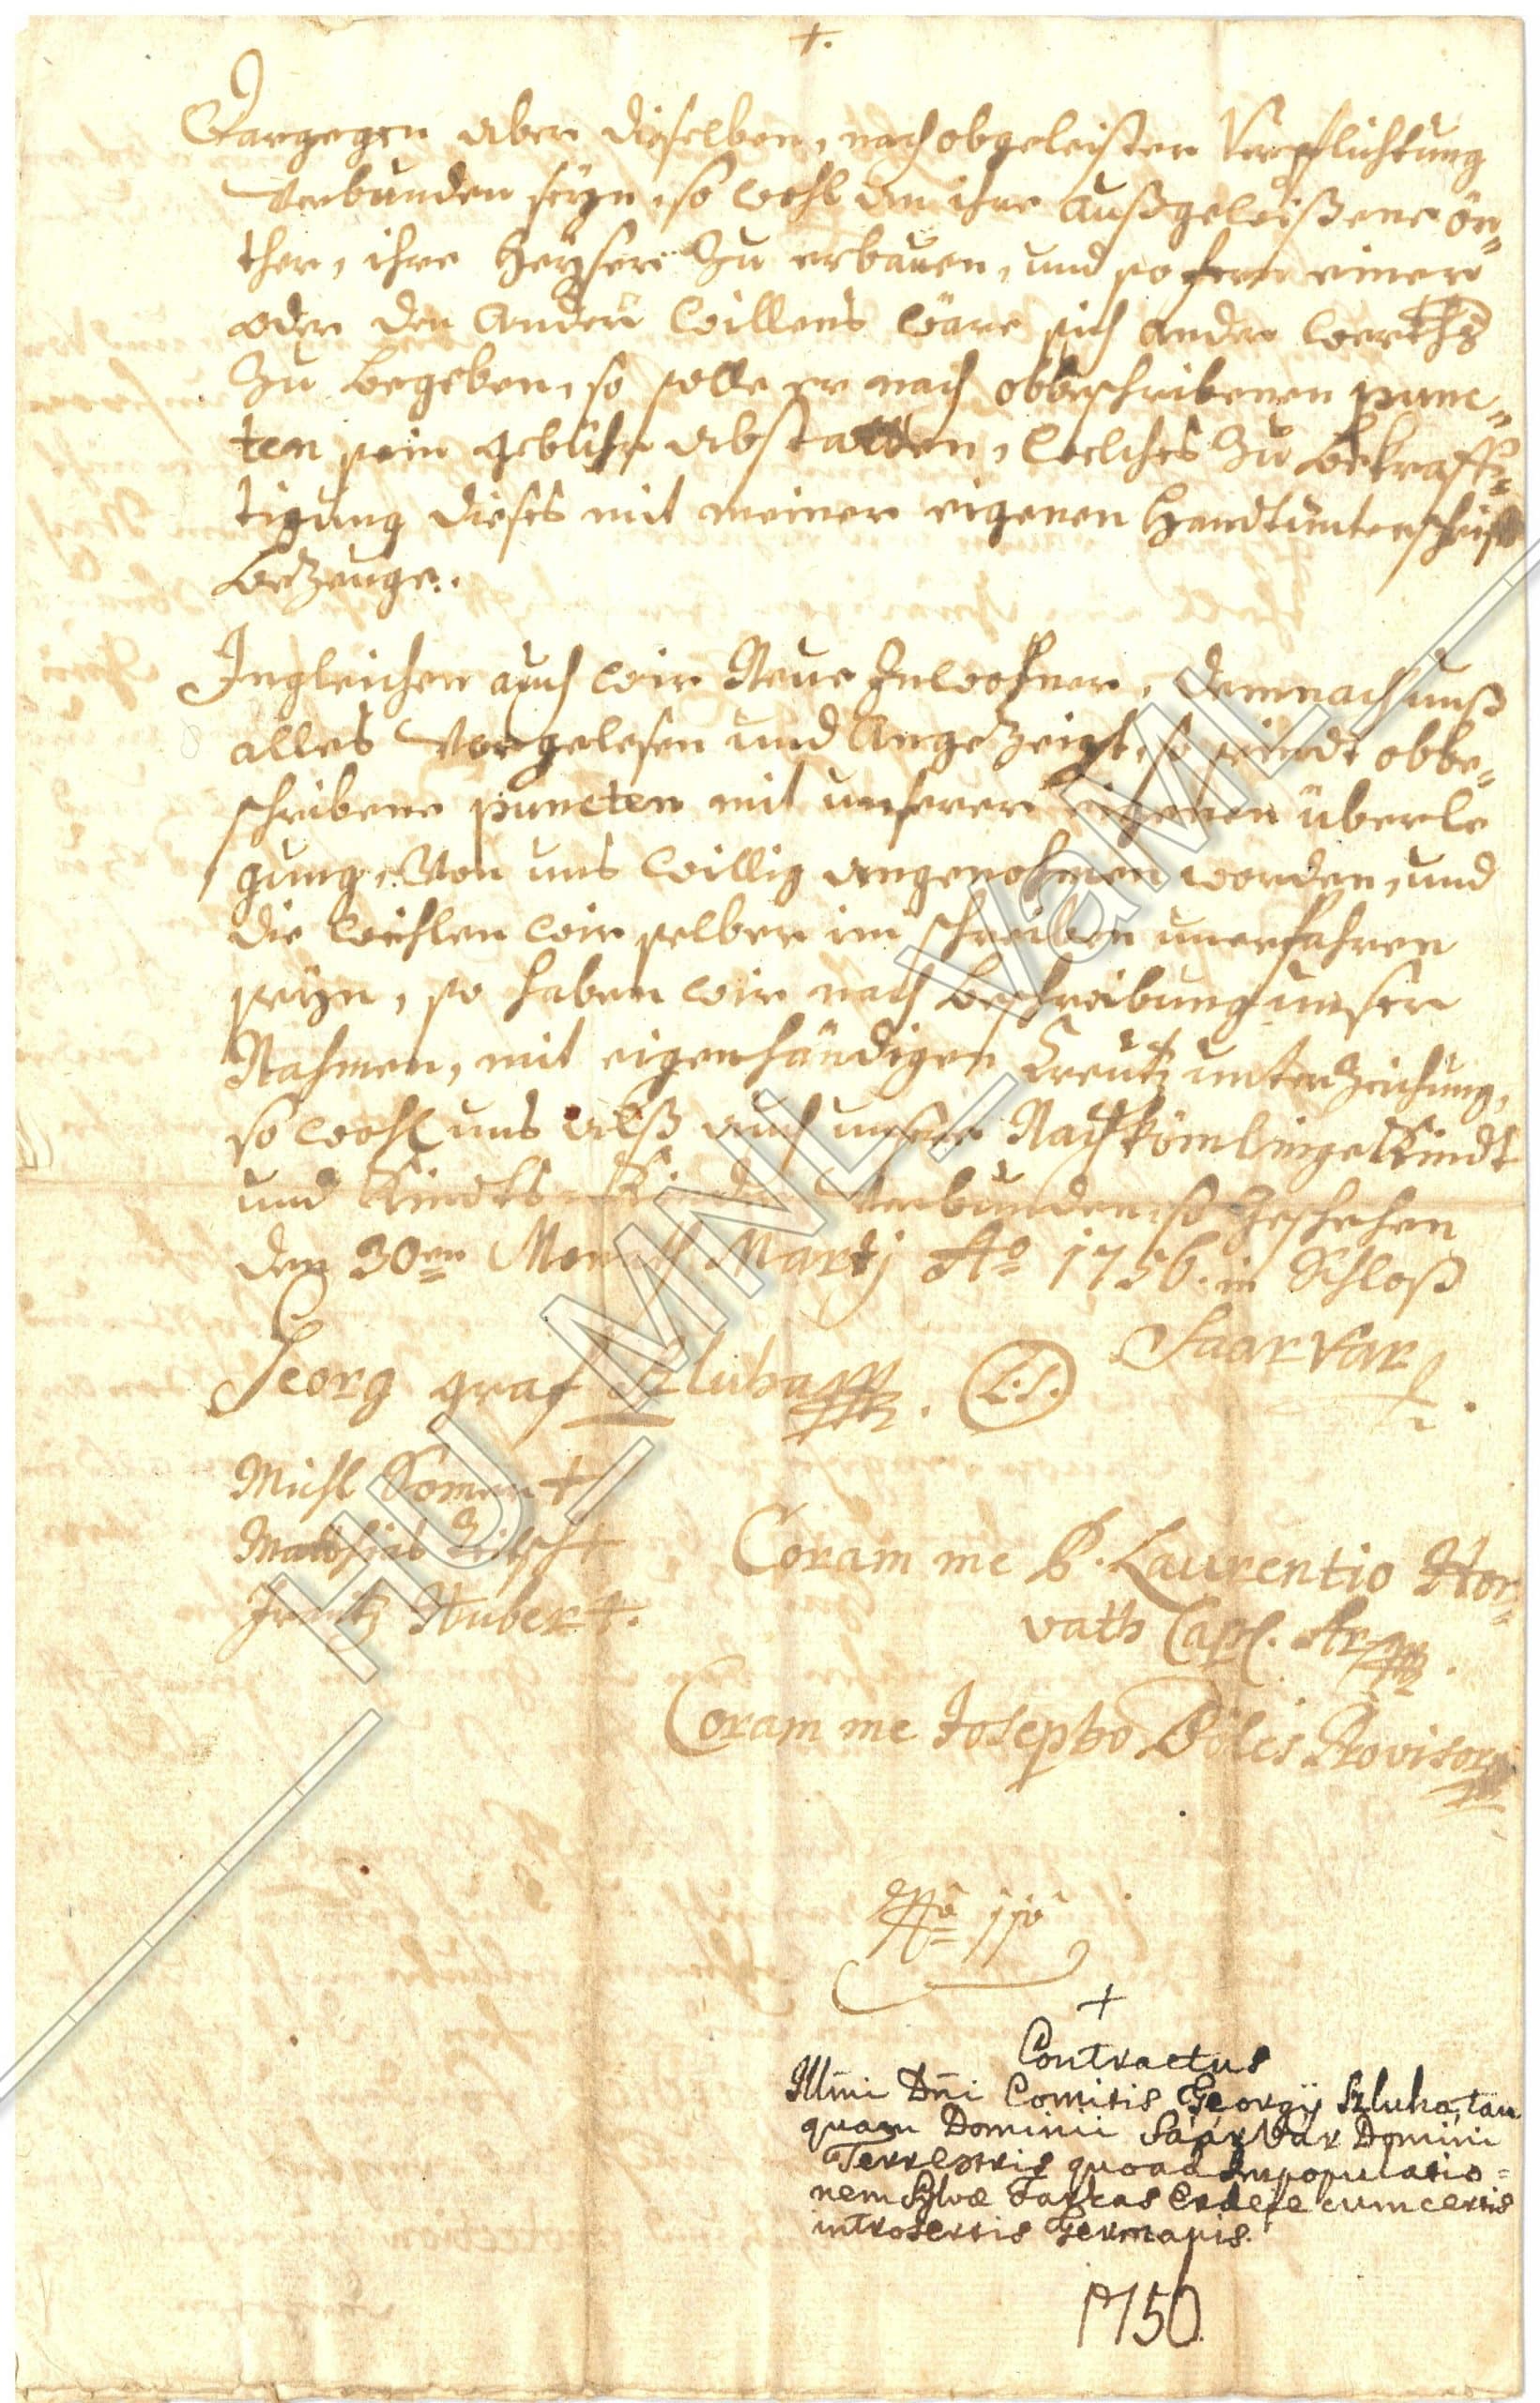 +.
Dargegen aber dieselben, nach obgeleister Verpflichtung
verbunden seyn, so wohl an ihre außgewißene ör-
ther, ihre Heyser zu erbauen, und so fern einer
oder der Ander Willens wäre sich ander werths
zu begeben, so solle er nach obbeschribenen punc-
ten sein gebühr abstatten, welches zu bekraff-
tigung dieses mit meiner eigenen Handtunterschrifft
bezeuge.
Ingleichen auch wir Neue Inwohner, demnach unß
alles vorgelesen und Angezeigt, so seindt obbe-
schribene puncten mit unserer eigenen überle
gung, Von uns willig angenohmen worden, und
die weihlen wir selber im schreiben unerfahren
seyn, so haben wir nach beschreibung unser
Nahmen, mit eigenhändigen Creutz unterzeichung,
so wohl uns alß auch unsere Nachkömlinge Kindt
und Kindts Kinder verbunden, so geschehen
den 30en Monath Martj Ao 1756. in Schloß
Saarvar
Georg graf Szluha mp. (L.S.)
Michl +
Matthias +
Frantz Huber +.
Coram me P. Laurentio Hor-
vath Capl. mp.
Coram me Josepho Bölcs Provisore mp
+
Contractus
Illmi Dni Comitis Georgij Szluha, tan
quam Dominii Sáár Vár Domini
Terrestris quoad Impopulatio-
nem Sylvae Farkas Erdeje cum certis
introsertis Germanis.
1750.
HU_MNL_VaML_